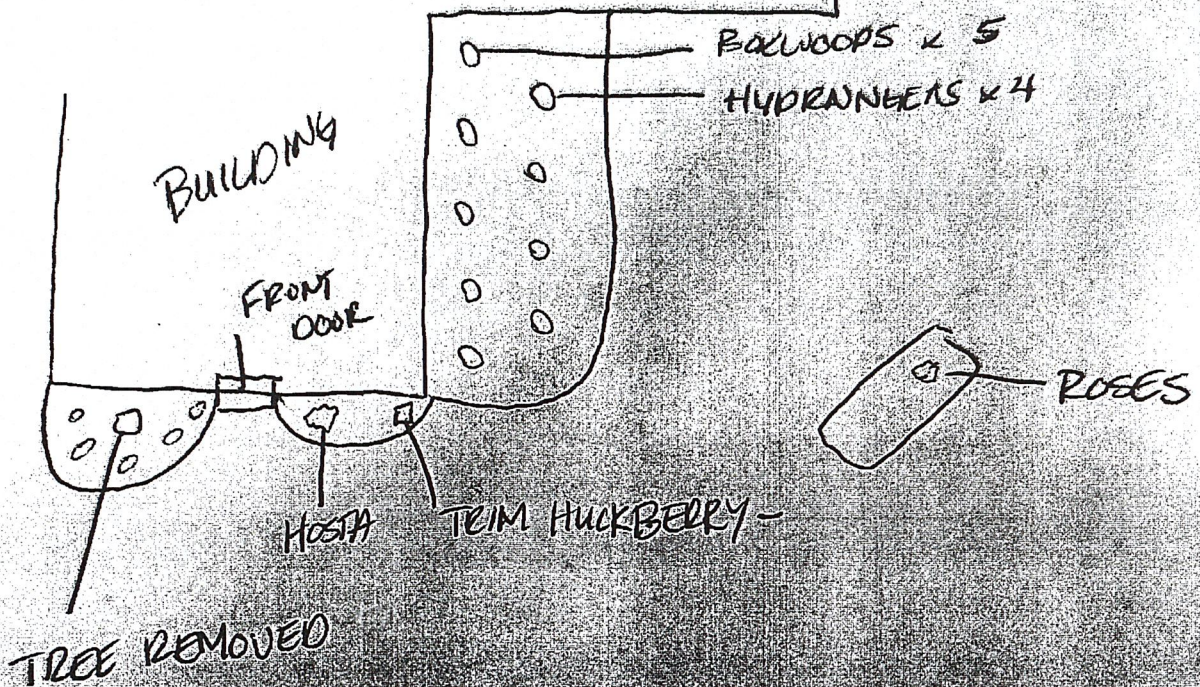 BOXWOODS x 5
HYDRANGEAS x 4
BUILDING
FRONT
DOOR
ROSES
HOSTA
TRIM HUCKBERRY -
TREE REMOVED